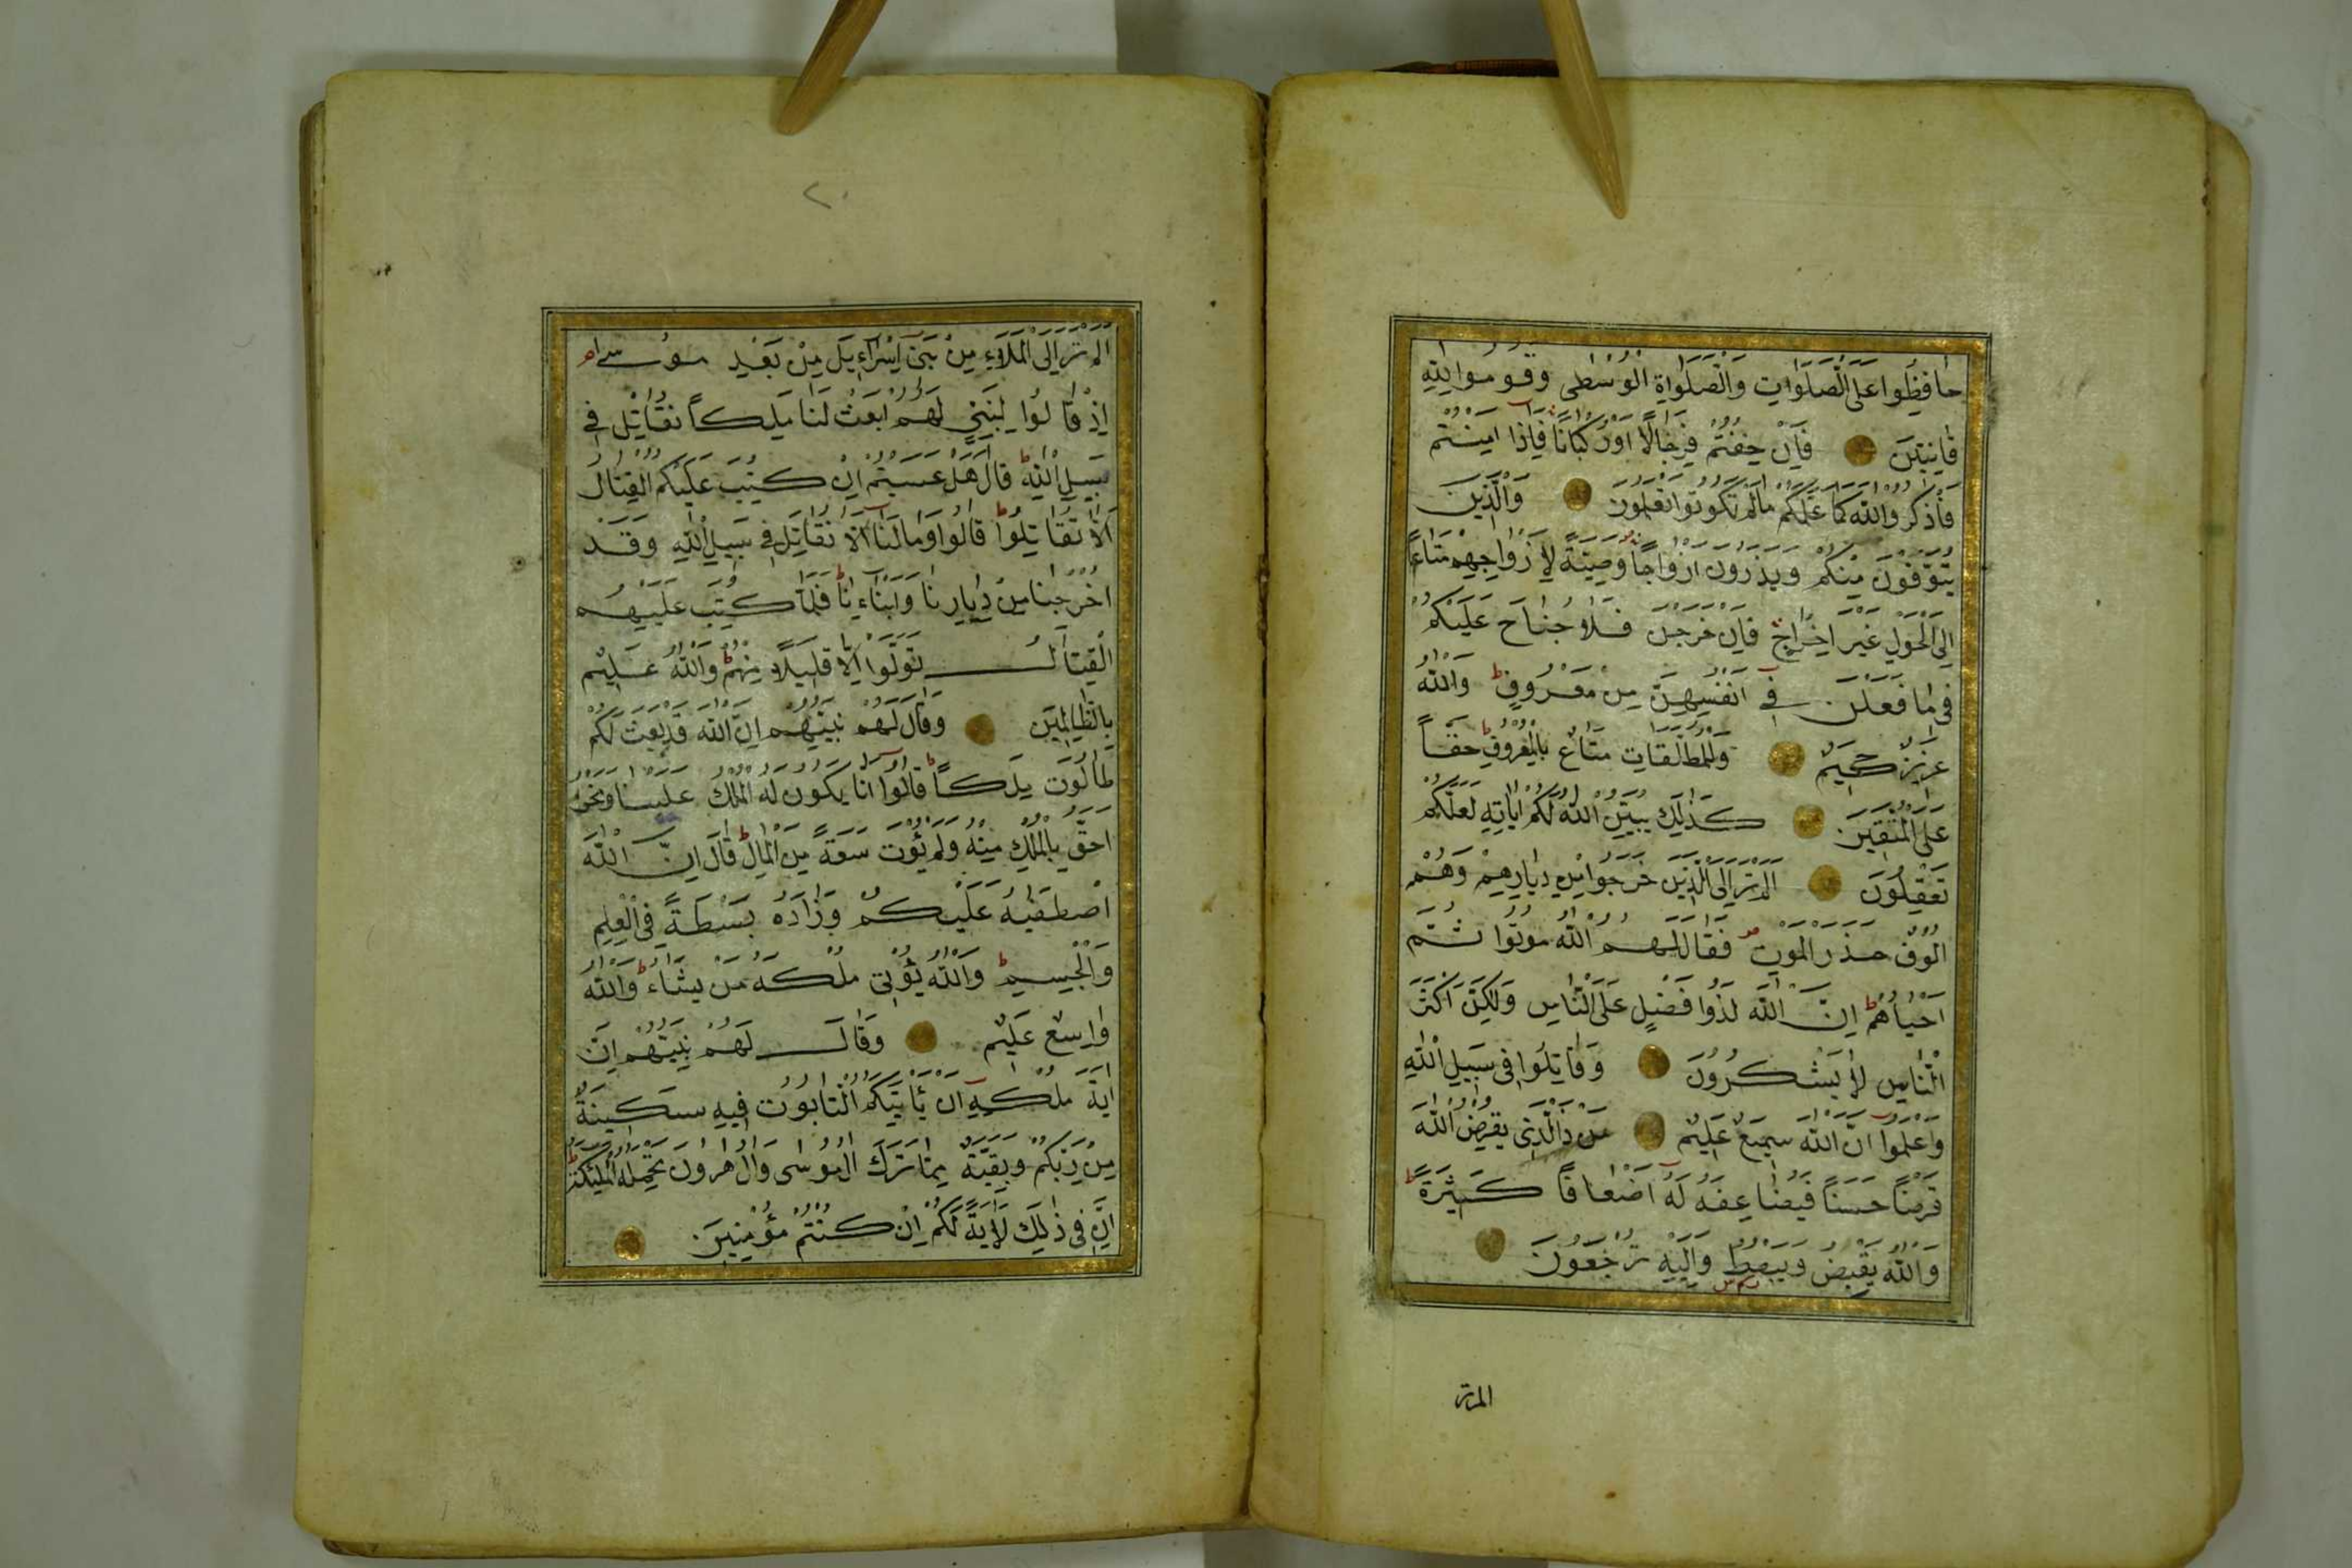 حَافِظُوا عَلَى الصَّلَوَاتِ وَالصَّلَوَاةِ الْوُسْطٰى وَقُومُوا لِلّٰهِ
قَانِتِينَ فَاِنْ خِفْتُمْ فَرِجَالًا اَوْ رُكْبَانًا فَاِذَا اَمِنْتُمْ
فَاذْكُرُوا اللّٰهَ كَمَا عَلَّمَكُمْ مَالَمْ تَكُونُوا تَعْلَمُونَ وَالَّذِينَ
يُتَوَفَّوْنَ مِنْكُمْ وَيَذَرُونَ اَزْوَاجًا وَصِيَّةً لِاَزْوَاجِهِمْ مَتَاعًا
اِلَى الْحَوْلِ غَيْرَ اِخْرَاجٍ فَاِنْ خَرَجْنَ فَلَا جُنَاحَ عَلَيْكُمْ
فِى مَا فَعَلْنَ فِى اَنْفُسِهِنَّ مِنْ مَعْرُوفٍ وَاللّٰهُ
عَزِيزٌ حَكِيمٌ وَلِلْمُطَلَّقَاتِ مَتَاعٌ بِالْمَعْرُوفِ حَقًّا
عَلَى الْمُتَّقِينَ كَذٰلِكَ يُبَيِّنُ اللّٰهُ لَكُمْ اٰيَاتِهِ لَعَلَّكُمْ
تَعْقِلُونَ اَلَمْ تَرَ اِلَى الَّذِينَ خَرَجُوا مِنْ دِيَارِهِمْ وَهُمْ
اُلُوفٌ حَذَرَ الْمَوْتِ فَقَالَ لَهُمُ اللّٰهُ مُوتُوا ثُمَّ
اَحْيَاهُمْ اِنَّ اللّٰهَ لَذُوا فَضْلٍ عَلَى النَّاسِ وَلٰكِنَّ اَكْثَرَ
النَّاسِ لَا يَشْكُرُونَ وَقَاتِلُوا فِى سَبِيلِ اللّٰهِ
وَاعْلَمُوا اَنَّ اللّٰهَ سَمِيعٌ عَلِيمٌ مَنْ ذَا الَّذِى يُقْرِضُ اللّٰهَ
قَرْضًا حَسَنًا فَيُضَاعِفَهُ لَهُ اَضْعَافًا كَثِيرَةً
وَاللّٰهُ يَقْبِضُ وَيَبْصُطُ وَاِلَيْهِ تُرْجَعُونَ
الم تر
٢٠
اَلَمْ تَرَ اِلَى الْمَلَاءِ مِنْ بَنِى اِسْرَاءِيلَ مِنْ بَعْدِ مُوسٰى
اِذْ قَالُوا لِنَبِيٍّ لَهُمُ ابْعَثْ لَنَا مَلِكًا نُقَاتِلْ فِى
سَبِيلِ اللّٰهِ قَالَ هَلْ عَسَيْتُمْ اِنْ كُتِبَ عَلَيْكُمُ الْقِتَالُ
اَلَّا تُقَاتِلُوا قَالُوا وَمَا لَنَا اَلَّا نُقَاتِلَ فِى سَبِيلِ اللّٰهِ وَقَدْ
اُخْرِجْنَا مِنْ دِيَارِنَا وَاَبْنَاءِنَا فَلَمَّا كُتِبَ عَلَيْهِمُ
الْقِتَالُ تَوَلَّوْا اِلَّا قَلِيلًا مِنْهُمْ وَاللّٰهُ عَلِيمٌ
بِالظَّالِمِينَ وَقَالَ لَهُمْ نَبِيُّهُمْ اِنَّ اللّٰهَ قَدْ بَعَثَ لَكُمْ
طَالُوتَ مَلِكًا قَالُوا اَنَّا يَكُونُ لَهُ الْمُلْكُ عَلَيْنَا وَنَحْنُ
اَحَقُّ بِالْمُلْكِ مِنْهُ وَلَمْ يُؤْتَ سَعَةً مِنَ الْمَالِ قَالَ اِنَّ اللّٰهَ
اصْطَفٰيهُ عَلَيْكُمْ وَزَادَهُ بَسْطَةً فِى الْعِلْمِ
وَالْجِسْمِ وَاللّٰهُ يُؤْتِى مُلْكَهُ مَنْ يَشَاءُ وَاللّٰهُ
وَاسِعٌ عَلِيمٌ وَقَالَ لَهُمْ نَبِيُّهُمْ اِنَّ
اٰيَةَ مُلْكِهِ اَنْ يَأْتِيَكُمُ التَّابُوتُ فِيهِ سَكِينَةٌ
مِنْ رَبِّكُمْ وَبَقِيَّةٌ مِمَّا تَرَكَ اٰلُ مُوسٰى وَاٰلُ هٰرُونَ تَحْمِلُهُ الْمَلٰئِكَةُ
اِنَّ فِى ذٰلِكَ لَاٰيَةً لَكُمْ اِنْ كُنْتُمْ مُؤْمِنِينَ